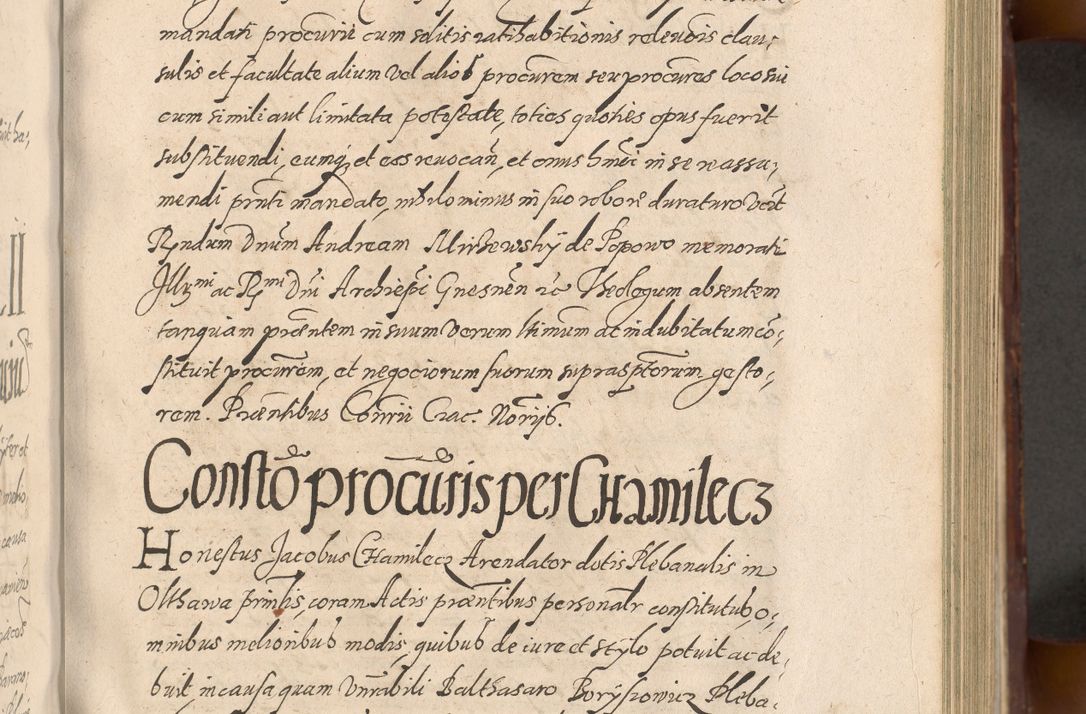 mandati procurii cum solitis ratihabitionis relevois clau;
sulis et facultate alium vel alios procurem seu procures loco sui
cum simili aut limitata potestate, toties quoties opus fuerit
substituendi, eumq; et eos revocan, et onus hmoi in se reassu;
mendi prnti mandato, nihilominus in suo robore duraturo
Rndum Dnum Andream Mirzewskÿ de Popowo memorati
Illmi ac Rmi Dni Archiepi Gnesnen &c Theologum absentem
tanquam praentem in suum verum ltimum ac indubitatum co;
stituit procurem, et negociorum suorum suprascptorum gesto;
rem. Praentibus Conrii Crac. Norijs.
Consto procuris per CHamilecz
Honestus Jacobus CHamilecz Arendator dotis Plebanalis in
Olkawa prinlis, coram Actis praentibus personalr constitutus, o;
mnibus melioribus modis quibus de iure et stÿlo potuit ac de;
buit in causa quam Vnrabili Balthasaro Borÿssowicz Pleba;